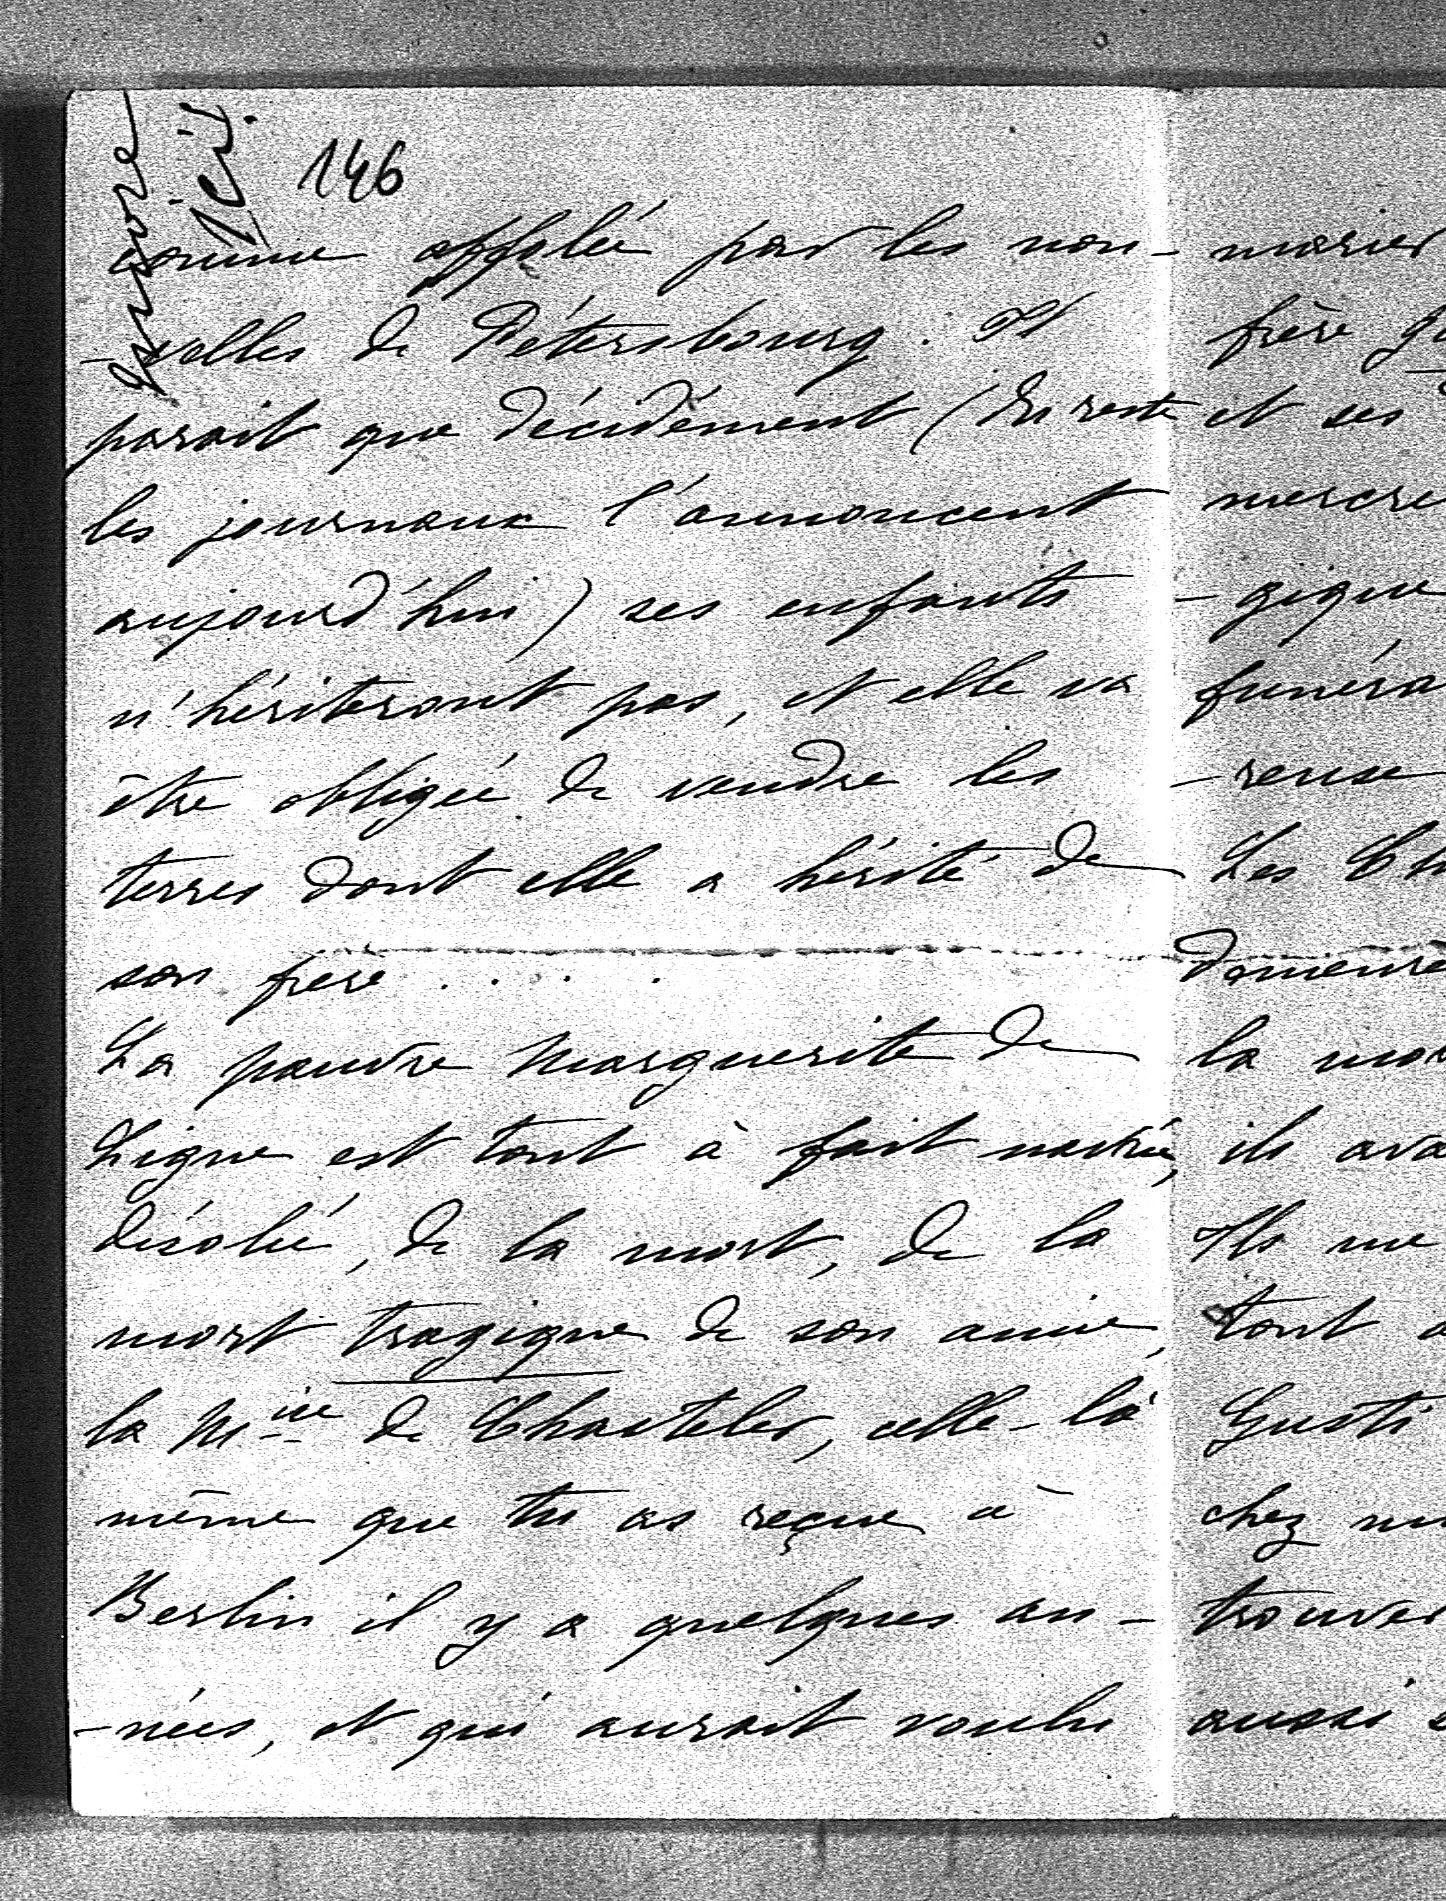 146
comme affolée par les nou-
-velles de Pétersbourg. Il
parait que décidément (du reste
les journaux l'annoncent
aujourd'hui) ses enfants
n'hériteront pas, et elle va
être obligée de vendre les
terres dont elle a hérité de
son frère . . . .
La pauvre Marguerite de
Ligne est tout à fait navrée,
désolée, de la mort, de la
mort tragique de son amie,
la Mise de Chasteler, celle-là
même que tu as reçue à
Berlin il y a quelques an-
-nées, et qui aurait voulu
marier
frère
et ses
mercre
-gique
funéra
-reuse
Les
demeure
la mor
ils ava
Ils me
tout a
Gusti
chez
trouver
aussi